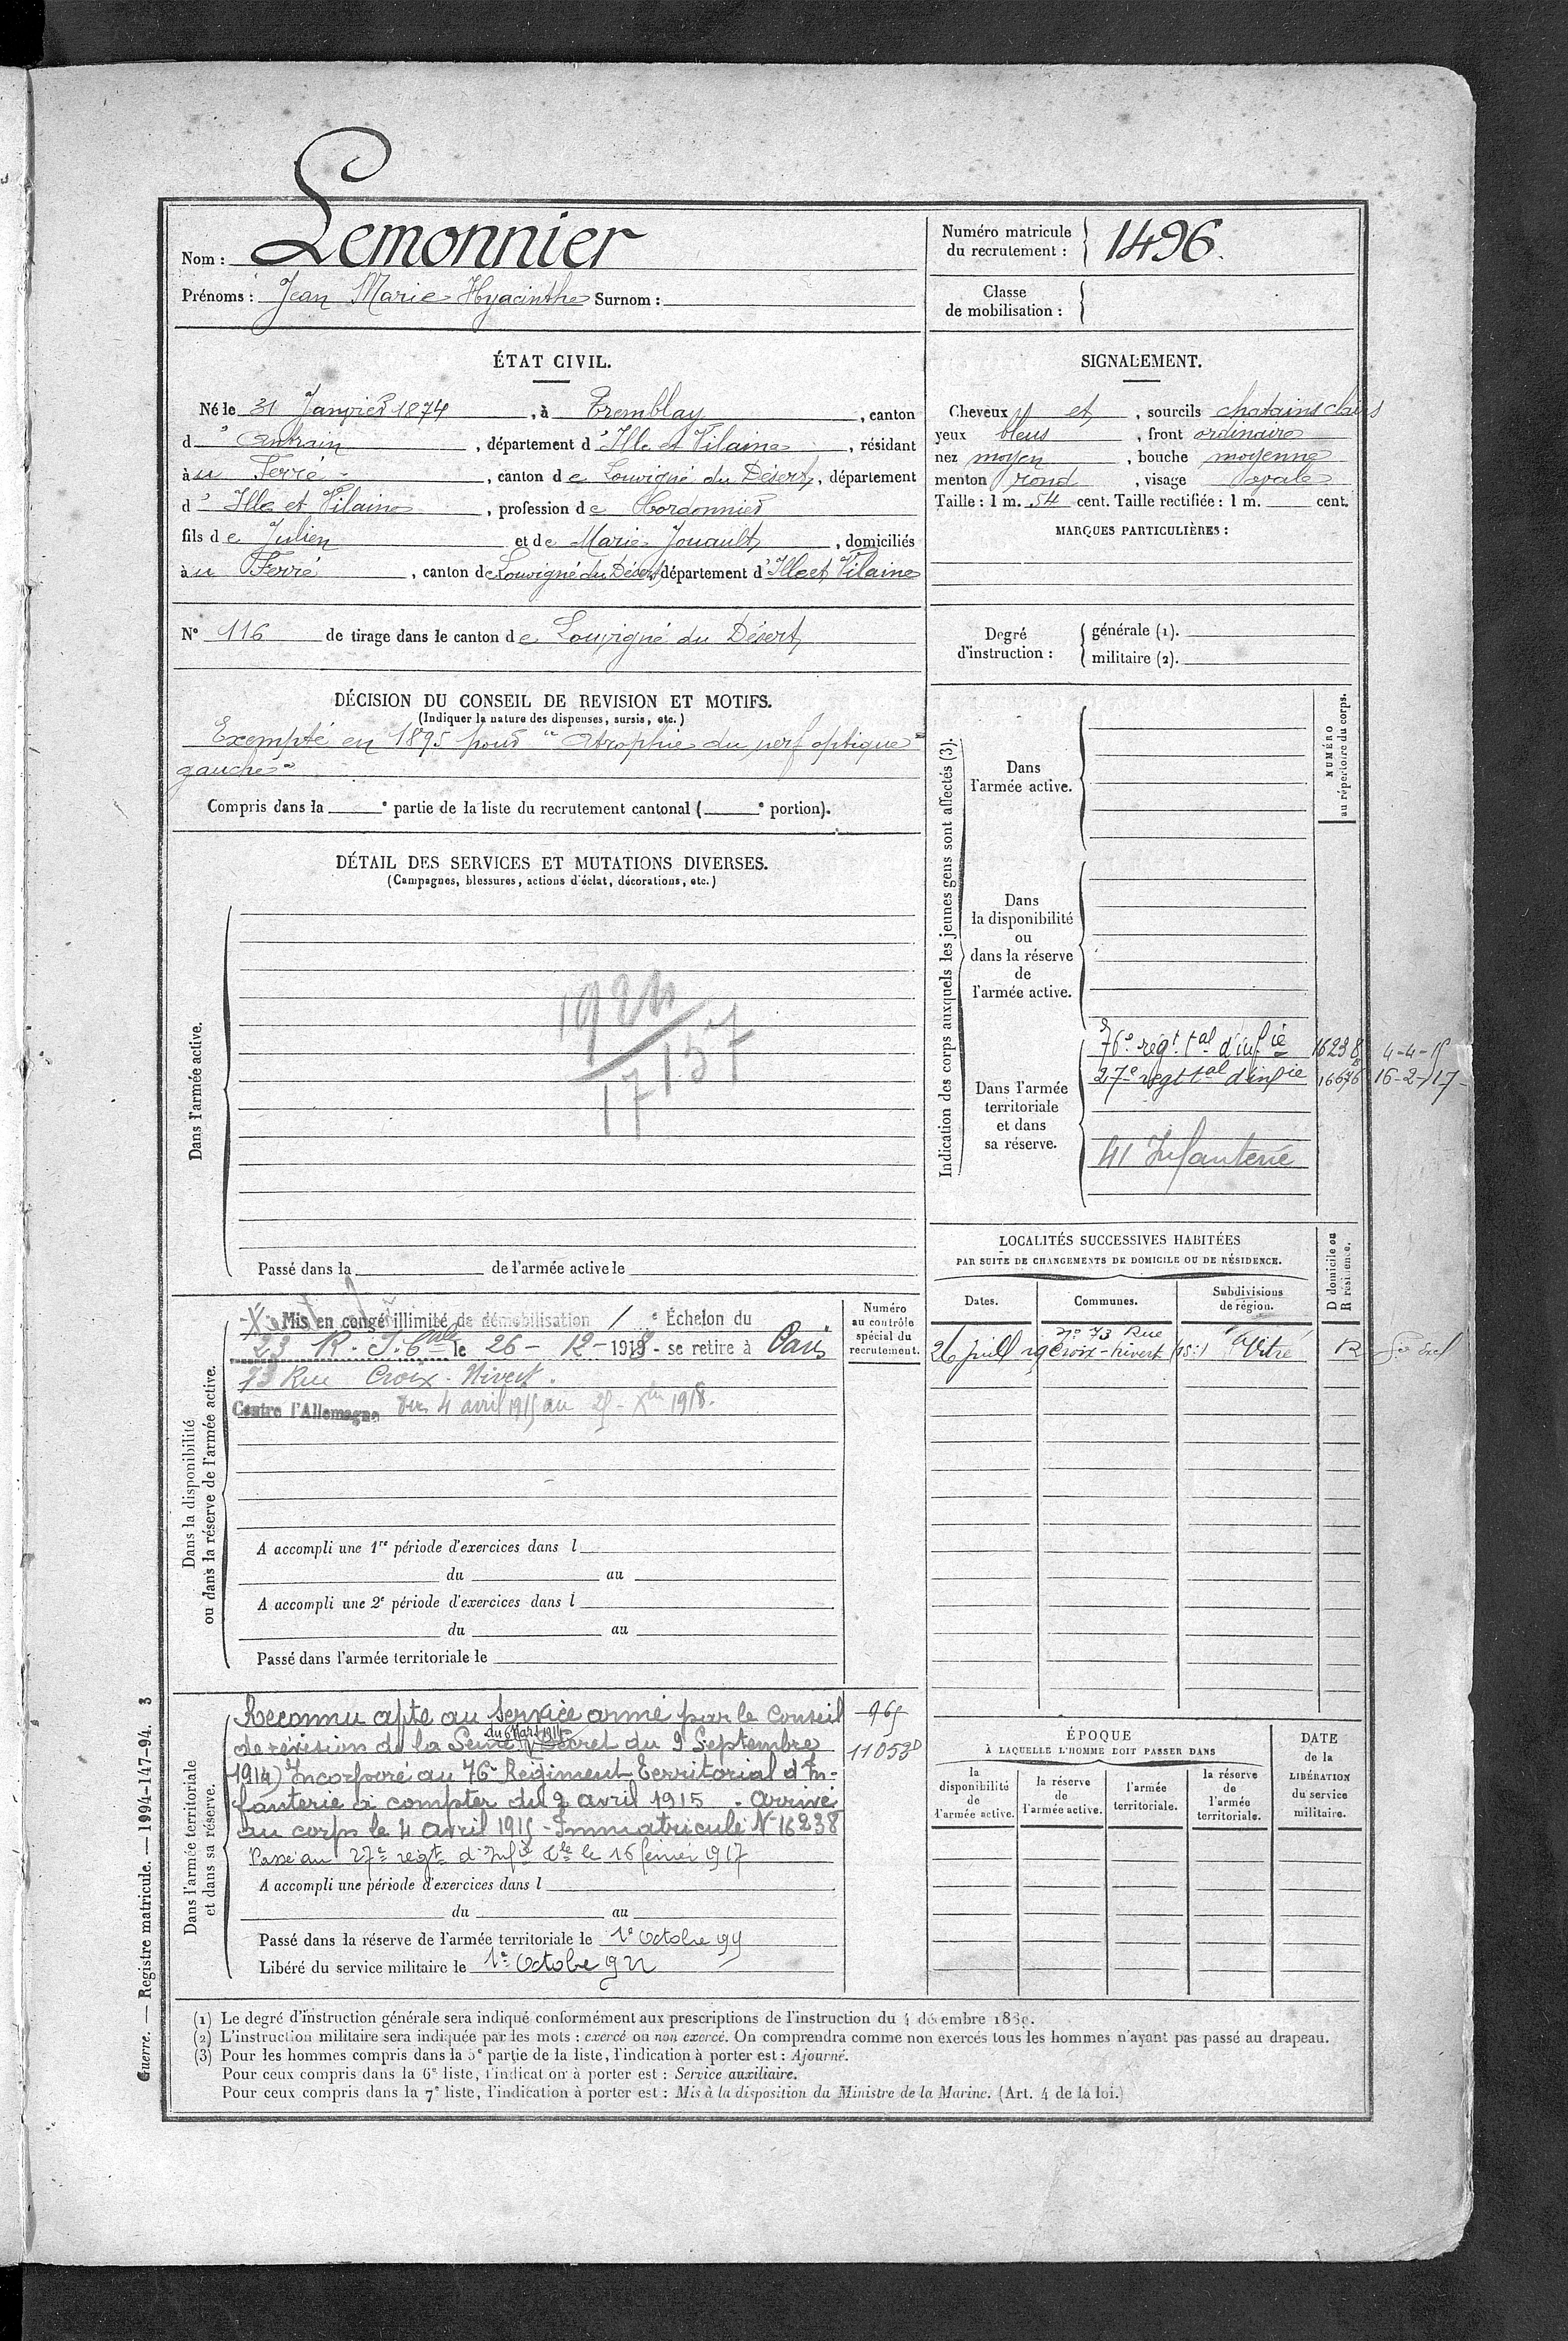 Nom : Lemonnier
Prénoms : Jean Marie Hyacinthe Surnom :
Numéro matricule du recrutement : 1496.
Classe de mobilisation :
ÉTAT CIVIL.
Né le 31 Janvier 1874, à Tremblay, canton
d' Antrain, département d' Ille et Vilaine, résidant
à u Ferré, canton de Louvigné du Désert, département
d' Ille et Vilaine, profession de Cordonnier
fils de Julien et de Marie Jouault, domiciliés
à u Ferré, canton de Louvigné du Désert, département d' Ille et Vilaine
N° 116 de tirage dans le canton de Louvigné du Désert
SIGNALEMENT.
Cheveux et, sourcils chatains clairs
yeux bleus, front ordinaire
nez moyen, bouche moyenne
menton rond, visage ovale
Taille : 1 m. 54 cent. Taille rectifiée : 1 m. cent.
MARQUES PARTICULIÈRES :
Degré d'instruction :
générale (1).
militaire (2).
DÉCISION DU CONSEIL DE REVISION ET MOTIFS.
(Indiquer la nature des dispenses, sursis, etc.)
Exempté en 1895 pour "Atrophie du nerf optique
gauche"
Compris dans la e partie de la liste du recrutement cantonal ( e portion).
DÉTAIL DES SERVICES ET MUTATIONS DIVERSES.
(Campagnes, blessures, actions d'éclat, décorations, etc.)
Dans l'armée active.
Passé dans la de l'armée active le
Indication des corps auxquels les jeunes gens sont affectés (3).
NUMÉRO au répertoire du corps.
Dans
l'armée active.
Dans
la disponibilité
ou
dans la réserve
de
l'armée active.
Dans l'armée
territoriale
et dans
sa réserve.
76e régt tal d'infie 16238 4-4-15
27e régt tal d'infie 16676 16-2-17
41 Infanterie
Dans la disponibilité
ou dans la réserve de l'armée active.
Numéro
au contrôle
spécial du
recrutement.
Mis en congé illimité de démobilisation 1 e Échelon du
23 R. I. Cale le 26-12-1918 - se retire à Paris
73 Rue Croix-Nivert.
Contre l'Allemagne du 4 avril 1915 au 25 Xbre 1918.
A accompli une 1re période d'exercices dans l
du au
A accompli une 2e période d'exercices dans l
du au
Passé dans l'armée territoriale le
LOCALITÉS SUCCESSIVES HABITÉES
PAR SUITE DE CHANGEMENTS DE DOMICILE OU DE RÉSIDENCE.
Dates. Communes. Subdivisions de région. D domicile ou R résidence.
26 juill 19 n° 73 Rue Croix-Nivert (15e) Vitré R
Dans l'armée territoriale
et dans sa réserve.
Reconnu apte au service armé par le Conseil
de révision de la Seine du 6 Mars 1915 (Décret du 9 Septembre
1914) Incorporé au 76e Régiment Territorial d'In-
fanterie à compter du 2 avril 1915. Arrivé
au corps le 4 avril 1915 - Immatriculé N° 16238
Passé au 27e régt d'Infie Tle le 16 février 1917
11053
A accompli une période d'exercices dans l
du au
Passé dans la réserve de l'armée territoriale le 1er Octobre 99
Libéré du service militaire le 1er Octobre 922
ÉPOQUE
À LAQUELLE L'HOMME DOIT PASSER DANS
la disponibilité de l'armée active.
la réserve de l'armée active.
l'armée territoriale.
la réserve de l'armée territoriale.
DATE de la LIBÉRATION du service militaire.
(1) Le degré d'instruction générale sera indiqué conformément aux prescriptions de l'instruction du 4 décembre 1889.
(2) L'instruction militaire sera indiquée par les mots : exercé ou non exercé. On comprendra comme non exercés tous les hommes n'ayant pas passé au drapeau.
(3) Pour les hommes compris dans la 5e partie de la liste, l'indication à porter est : Ajourné.
Pour ceux compris dans la 6e liste, l'indication à porter est : Service auxiliaire.
Pour ceux compris dans la 7e liste, l'indication à porter est : Mis à la disposition du Ministre de la Marine. (Art. 4 de la loi.)
Guerre. — Registre matricule. — 1994-147-94. 3